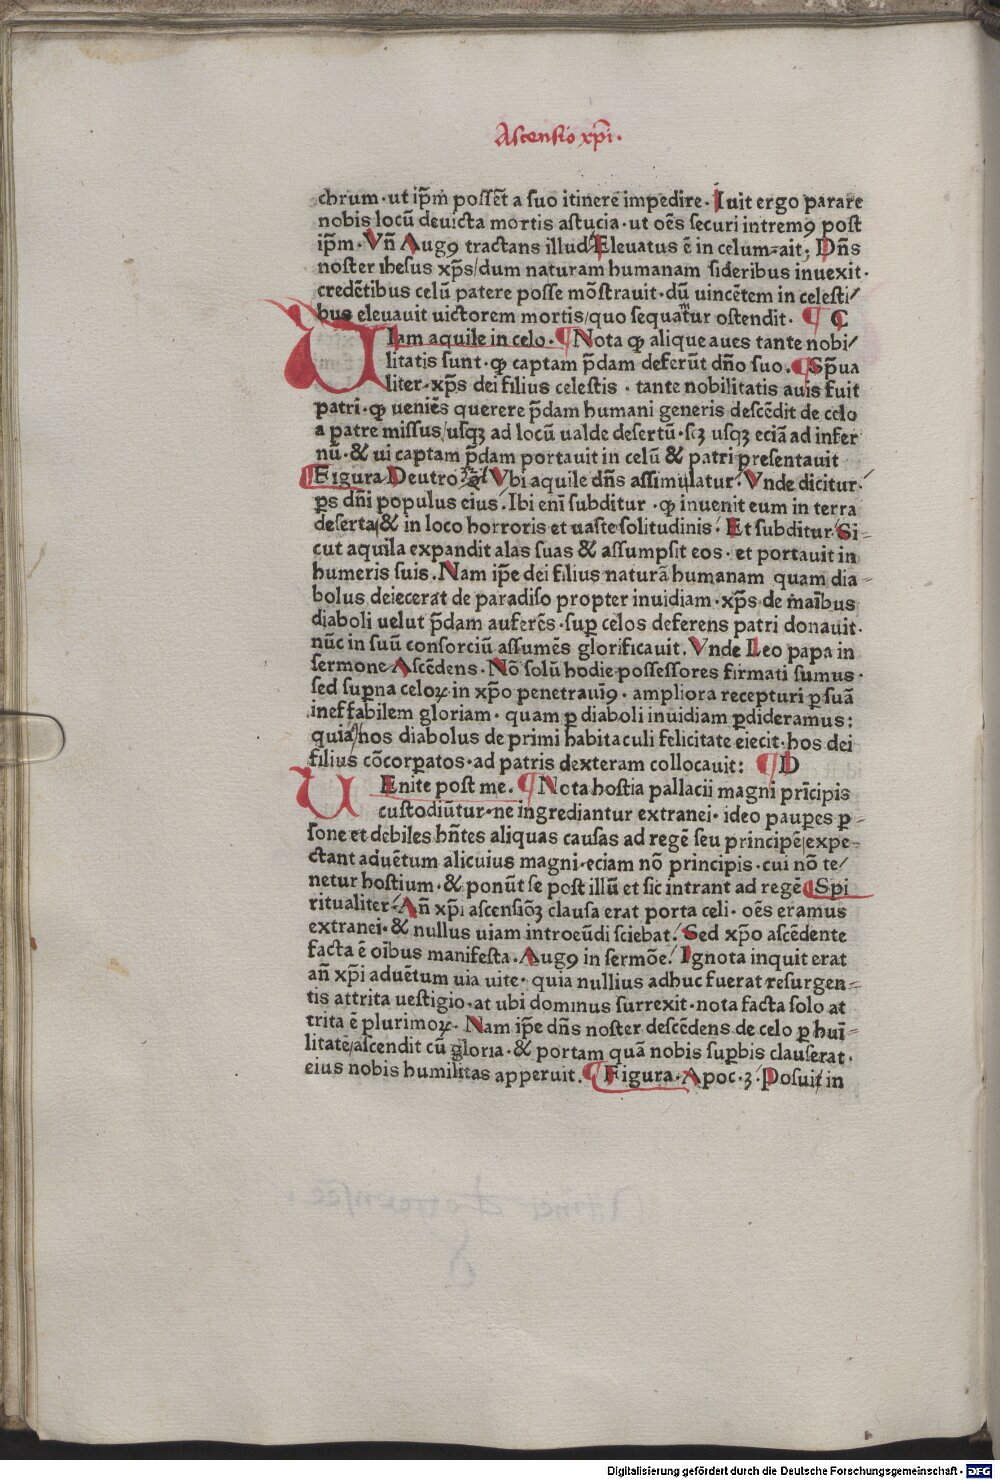 Ascensio xp̄i.
chrum·ut ip̄m possēt a suo itinere impedire·Iuit ergo parare
nobis locū deuicta mortis astucia·ut oēs securi intremꝰ post
ip̄m·Vn̄ Augꝰ tractans illud Eleuatus ē in celum·ait; Dn̄s
noster ihesus xp̄s/dum naturam humanam sideribus inuexit·
credētibus celū patere posse mōstrauit·dū uincētem in celesti/
bus eleuauit uictorem mortis/quo sequamur ostendit· ¶ C
UIam aquile in celo·¶Nota ꝙ alique aues tante nobi/
litatis sunt·ꝙ captam p̄dam deferūt dn̄o suo.¶Sp̄ua
liter·xp̄s dei filius celestis·tante nobilitatis auis fuit
patri·ꝙ ueniēs querere p̄dam humani generis descēdit de celo
a patre missus/usqꝫ ad locū ualde desertū·scꝫ usqꝫ eciā ad infer
nū·& ui captam p̄dam portauit in celū & patri presentauit
¶Figura Deutro Vbi aquile dn̄s assimulatur·Vnde dicitur·
ꝑs dn̄i populus eius·Ibi eni subditur·ꝙ inuenit eum in terra
deserta/& in loco horroris et uaste solitudinis·Et subditur Si-
cut aquila expandit alas suas & assumpsit eos·et portauit in
humeris suis.Nam ip̄e dei filius naturā humanam quam dia-
bolus deiecerat de paradiso propter inuidiam·xp̄s de maībus
diaboli uelut p̄dam auferēs·suꝑ celos deferens patri donauit·
nūc in suū consorciū assumēs glorificauit.Vnde Leo papa in
sermone Ascēdens·Nō solū hodie possessores firmati sumus·
sed suꝑna celoꝝ in xp̄o penetrauīꝰ·ampliora recepturi ꝑ suā
ineffabilem gloriam·quam ꝑ diaboli inuidiam ꝑdideramus:
quia hos diabolus de primi habitaculi felicitate eiecit·hos dei
filius cōcorꝑatos·ad patris dexteram collocauit: ¶D
UEnite post me.¶Nota hostia pallacii magni prīcipis
custodiūtur·ne ingrediantur extranei·ideo pauꝑes ꝑ-
sone et debiles hn̄tes aliquas causas ad regē seu principē/expe-
ctant aduētum alicuius magni·eciam nō principis·cui nō te/
netur hostium·& ponūt se post illū et sic intrant ad regē¶Spi
ritualiter·An̄ xp̄i ascensiōꝫ clausa erat porta celi·oēs eramus
extranei·& nullus uiam introeūdi sciebat·Sed xp̄o ascēdente
facta ē oībus manifesta.Augꝰ in sermōe·Ignota inquit erat
an̄ xp̄i aduētum uia uite·quia nullius adhuc fuerat resurgen-
tis attrita uestigio·at ubi dominus surrexit·nota facta solo at
trita ē plurimoꝝ·Nam ip̄e dn̄s noster descēdens de celo ꝑ huī-
litatē/ascendit cū gloria·& portam quā nobis suꝑbis clauserat·
eius nobis humilitas apperuit.¶Figura·Apoc·3·Posuit in
Digitalisierung gefördert durch die Deutsche Forschungsgemeinschaft - DFG